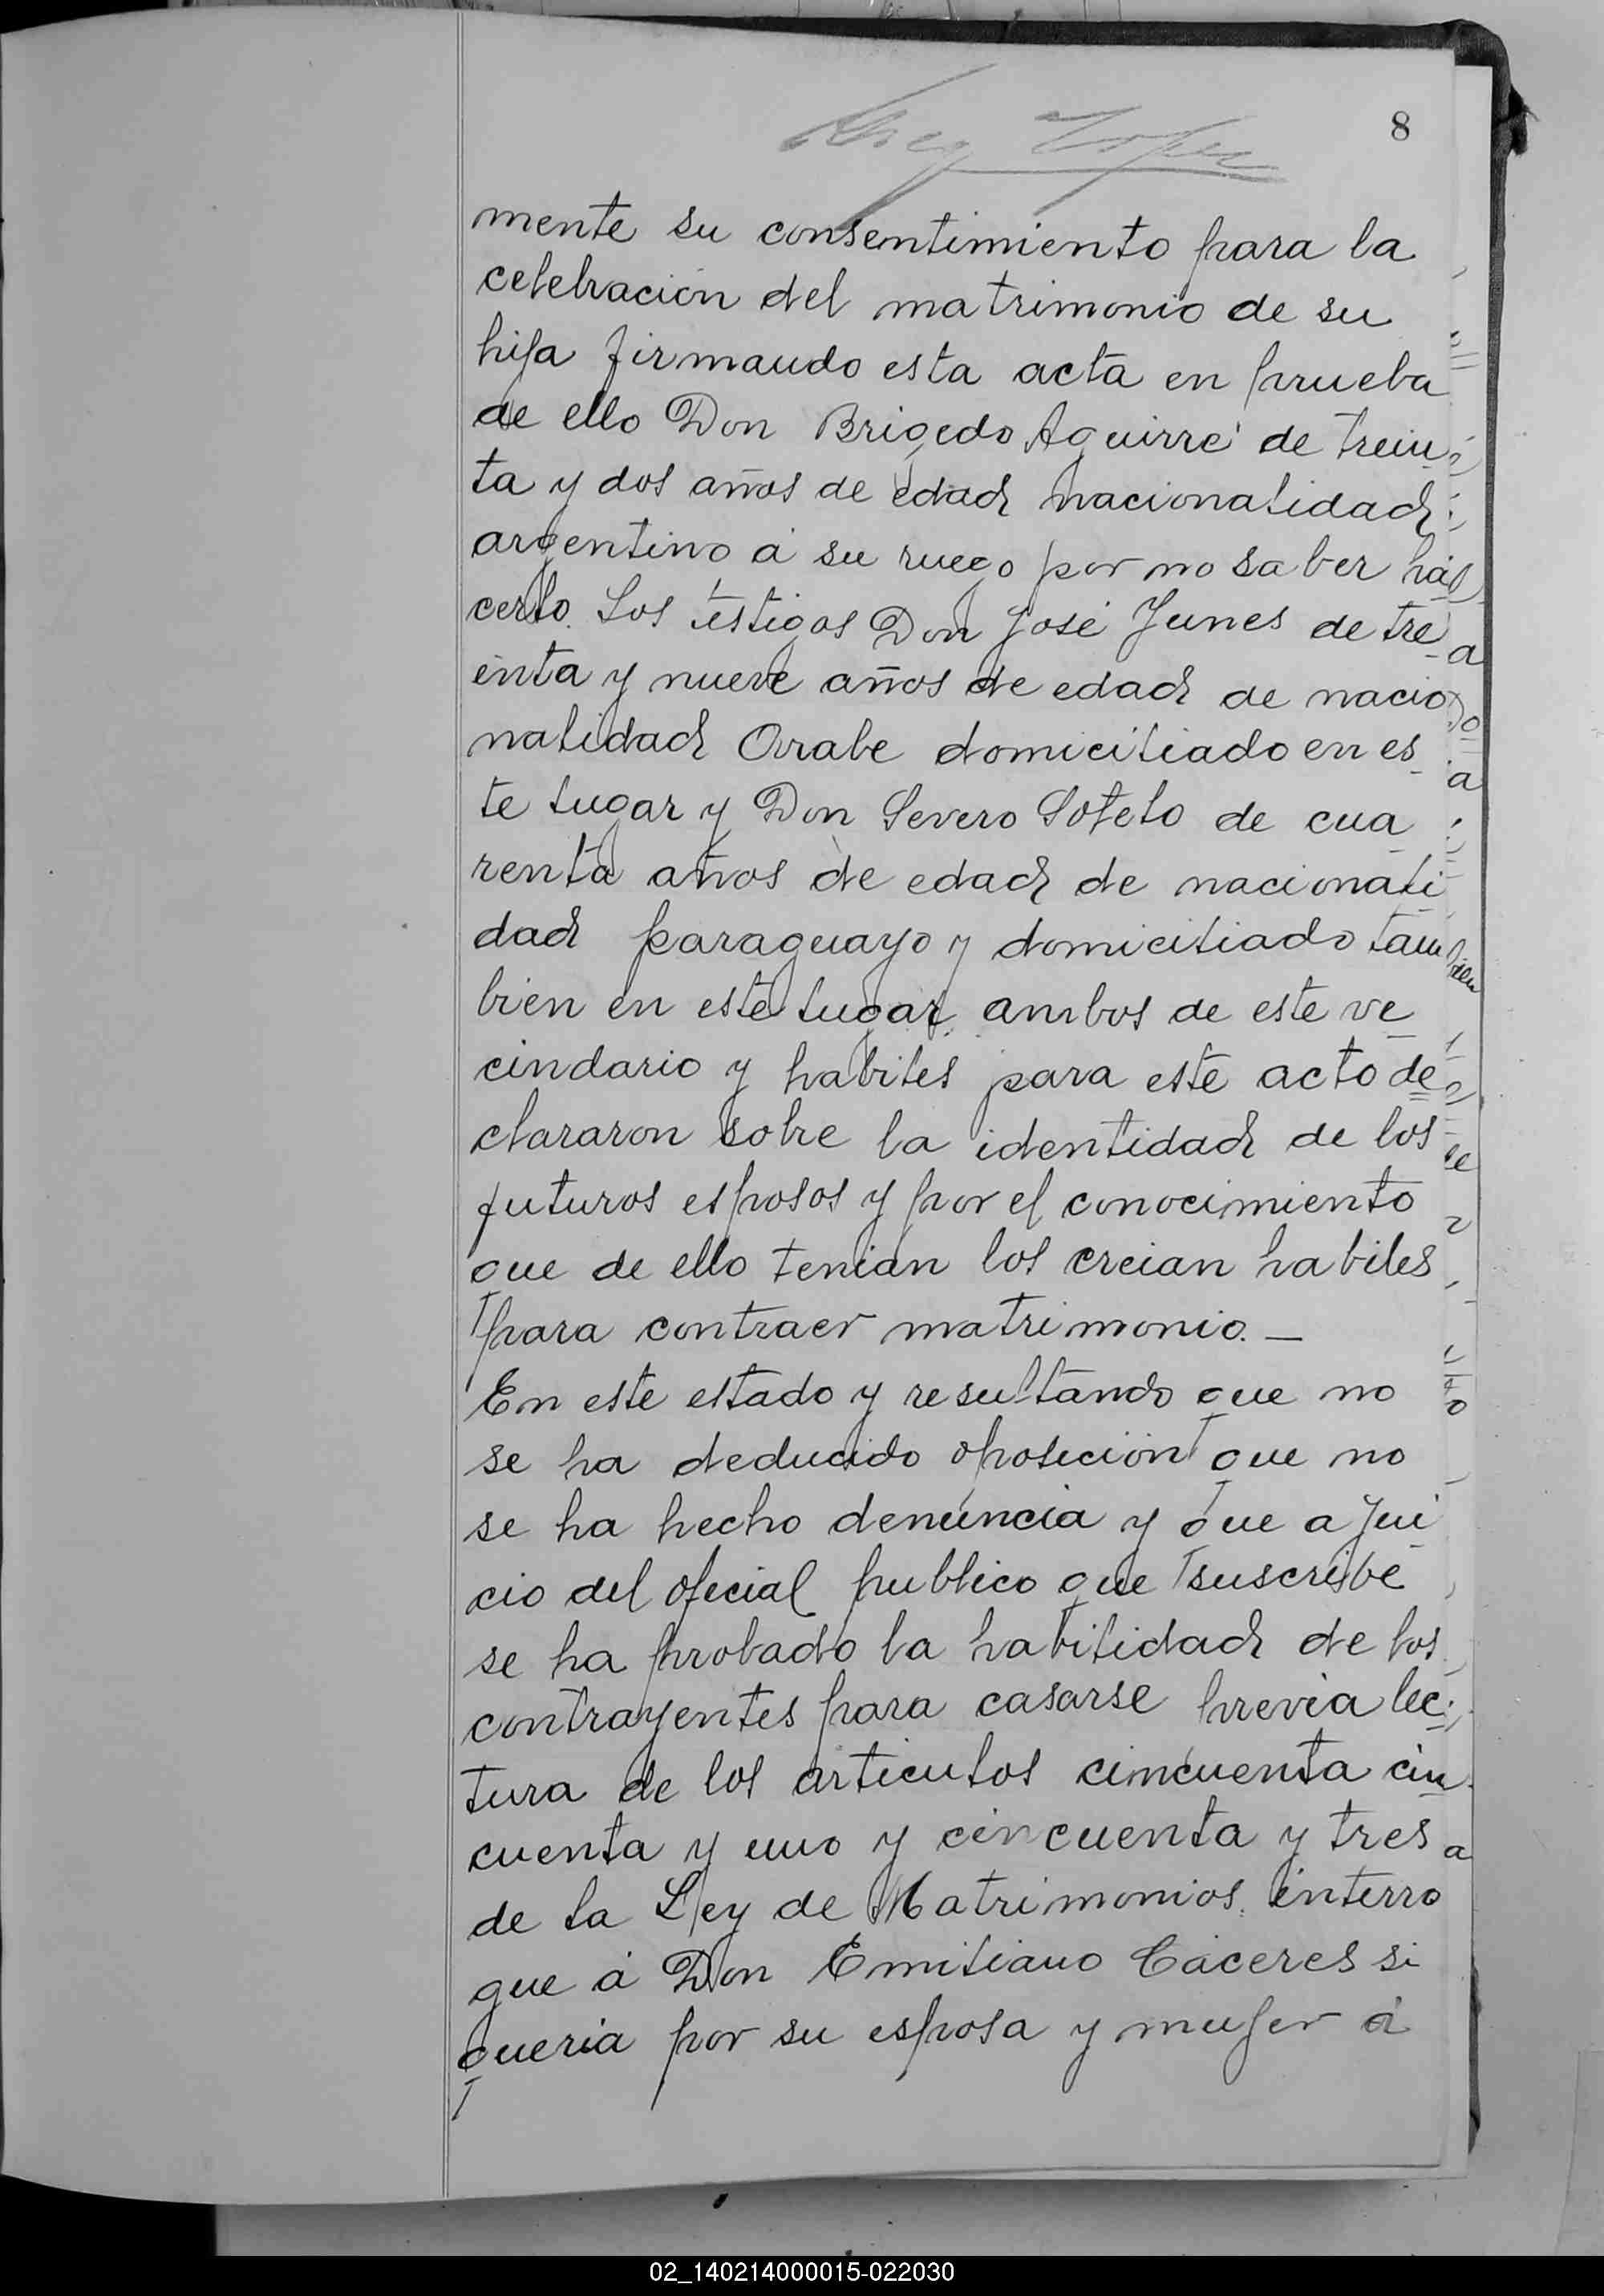 8
mente su consentimiento para la
celebración del matrimonio de su
hija firmando esta acta en prueba
de ello Don Brigedo Aguirre de trein
ta y dos años de edad nacionalidad
argentino á su ruego por no saber há
cerlo. Los testigos Don José Junes de tre
inta y nueve años de edad de nacio
nalidad Arabe domiciliado en es
te lugar y Don Severo Sotelo de cua
renta años de edad de nacionali
dad paraguayo y domiciliado tam
bien en este lugar, ambos de este ve
cindario y habiles para este acto de
clararon sobre la identidad de los
futuros esposos y por el conocimiento
que de ello tenian los creian habiles
para contraer matrimonio. —
En este estado y resultando que no
se ha deducido oposición que no
se ha hecho denuncia y que a jui
cio del oficial publico que suscribe
se ha probado la habilidad de los
contrayentes para casarse previa lec
tura de los articulos cincuenta cin
cuenta y uno y cincuenta y tres
de la Ley de Matrimonios. interro
gue á Don Emiliano Cáceres si
queria por su esposa y mujer á
02_140214000015-022030